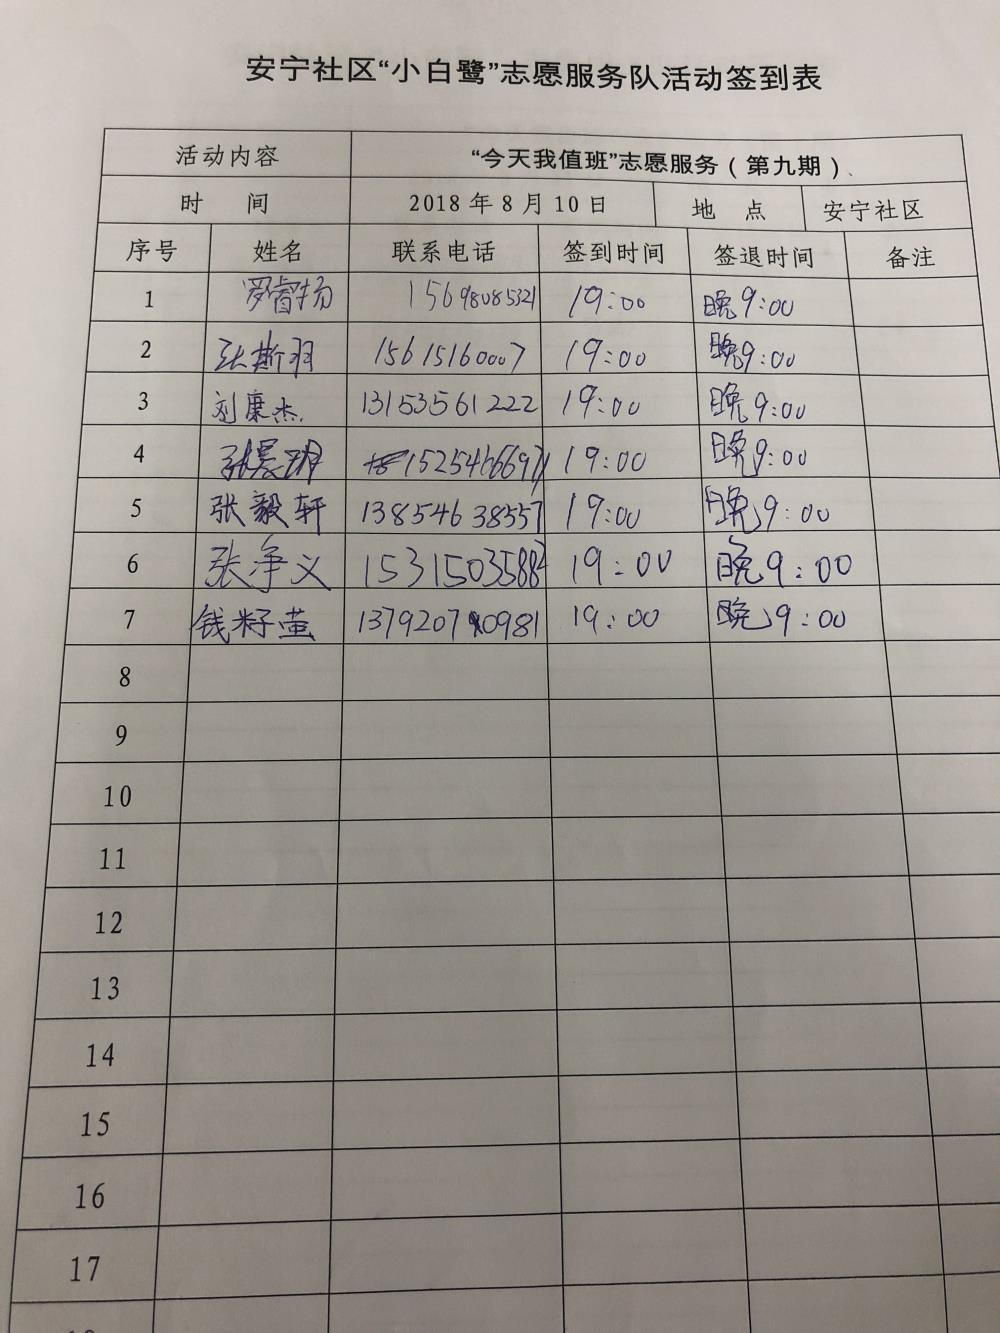 安宁社区“小白鹭”志愿服务队活动签到表
活动内容 “今天我值班”志愿服务（第九期）
时 间 2018年8月10日 地 点 安宁社区
序号 姓名 联系电话 签到时间 签退时间 备注
1 罗睿扬 15698085321 19:00 晚9:00
2 张斯羽 15615160007 19:00 晚9:00
3 刘康杰 13153561222 19:00 晚9:00
4 19:00 晚9:00
5 张毅轩 13854638557 19:00 晚9:00
6 张争义 19:00 晚9:00
7 钱籽萤 19:00 晚9:00
8
9
10
11
12
13
14
15
16
17